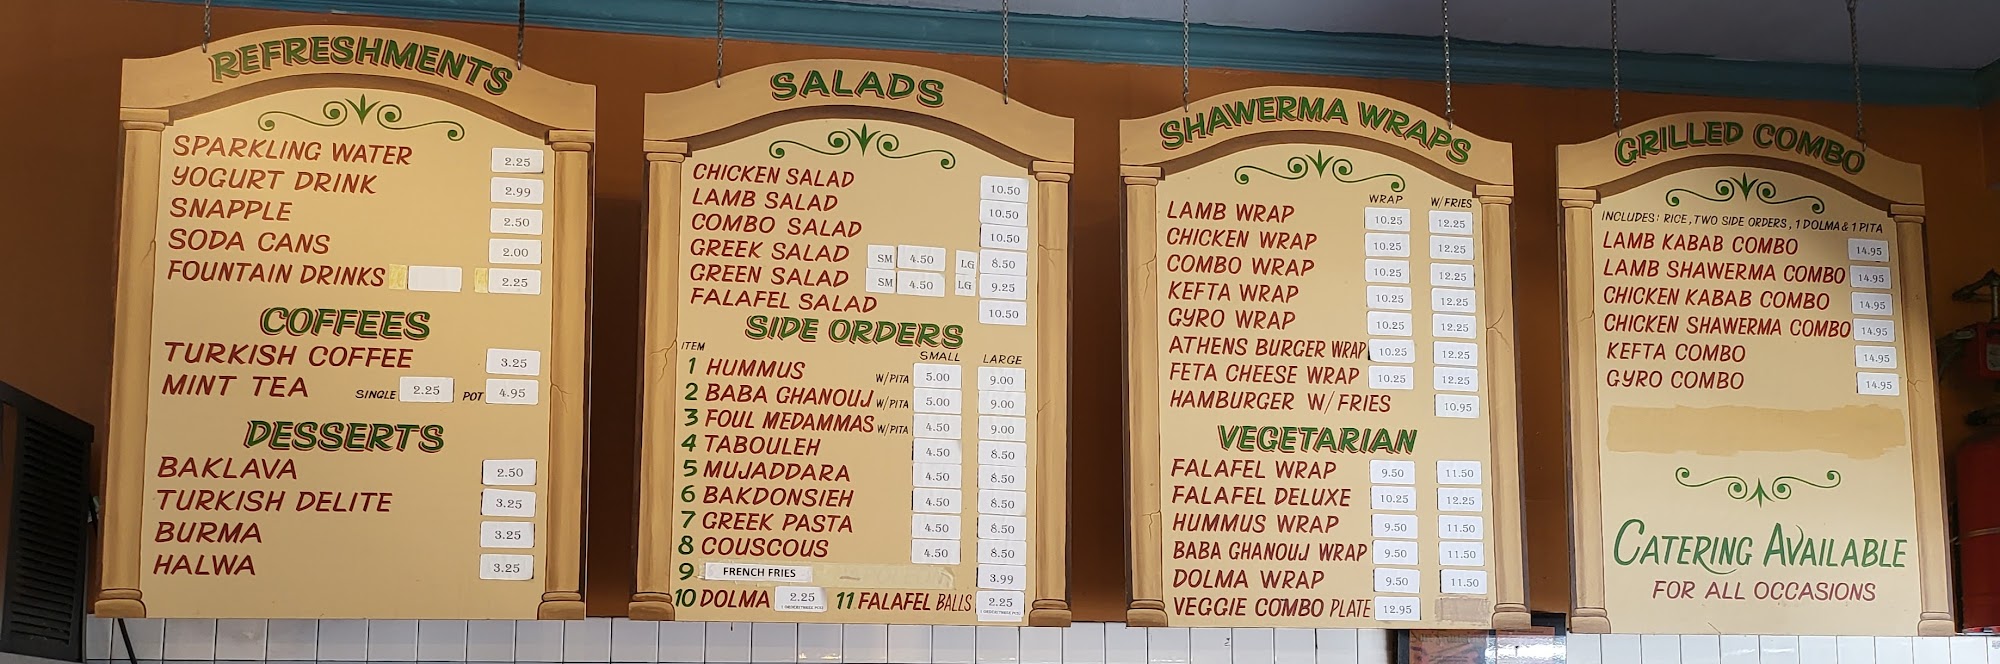 REFRESHMENTS
SPARKLING WATER 2.25
YOGURT DRINK 2.99
SNAPPLE 2.50
SODA CANS 2.00
FOUNTAIN DRINKS 2.25
COFFEES
TURKISH COFFEE 3.25
MINT TEA SINGLE 2.25 POT 4.95
DESSERTS
BAKLAVA 2.50
TURKISH DELITE 3.25
BURMA 3.25
HALWA 3.25
SALADS
CHICKEN SALAD 10.50
LAMB SALAD 10.50
COMBO SALAD 10.50
GREEK SALAD SM 4.50 LG 8.50
GREEN SALAD SM 4.50 LG 9.25
FALAFEL SALAD 10.50
SIDE ORDERS
ITEM SMALL LARGE
1 HUMMUS W/PITA 5.00 9.00
2 BABA GHANOUJ W/PITA 5.00 9.00
3 FOUL MEDAMMAS W/PITA 4.50 9.00
4 TABOULEH 4.50 8.50
5 MUJADDARA 4.50 8.50
6 BAKDONSIEH 4.50 8.50
7 GREEK PASTA 4.50 8.50
8 COUSCOUS 4.50 8.50
9 FRENCH FRIES 3.99
10 DOLMA 2.25 11 FALAFEL BALLS 2.25
SHAWERMA WRAPS
WRAP W/FRIES
LAMB WRAP 10.25 12.25
CHICKEN WRAP 10.25 12.25
COMBO WRAP 10.25 12.25
KEFTA WRAP 10.25 12.25
GYRO WRAP 10.25 12.25
ATHENS BURGER WRAP 10.25 12.25
FETA CHEESE WRAP 10.25 12.25
HAMBURGER W/FRIES 10.95
VEGETARIAN
FALAFEL WRAP 9.50 11.50
FALAFEL DELUXE 10.25 12.25
HUMMUS WRAP 9.50 11.50
BABA GHANOUJ WRAP 9.50 11.50
DOLMA WRAP 9.50 11.50
VEGGIE COMBO PLATE 12.95
GRILLED COMBO
INCLUDES: RICE, TWO SIDE ORDERS, 1 DOLMA & 1 PITA
LAMB KABAB COMBO 14.95
LAMB SHAWERMA COMBO 14.95
CHICKEN KABAB COMBO 14.95
CHICKEN SHAWERMA COMBO 14.95
KEFTA COMBO 14.95
GYRO COMBO 14.95
CATERING AVAILABLE
FOR ALL OCCASIONS